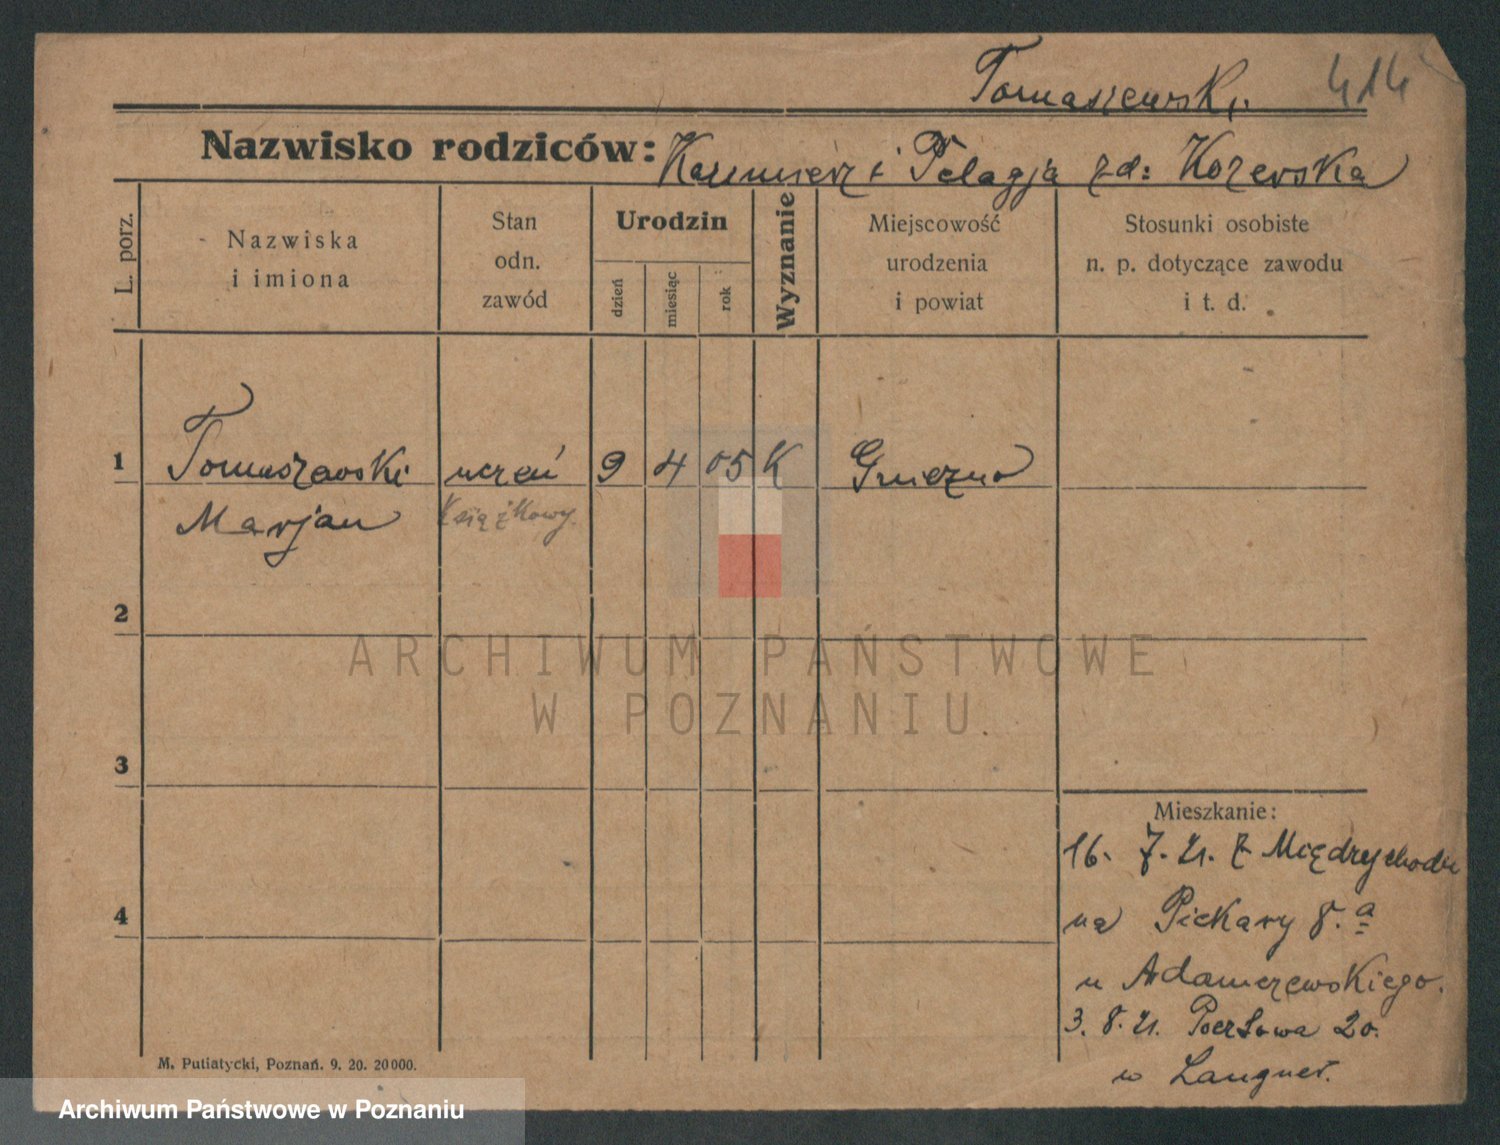 Tomaszewski. 414
Nazwisko rodziców: Kazimierz i Pelagja zd: Kozerska
L. porz.
Nazwiska
i imiona
Stan
odn.
zawód
Urodzin
dzień
miesiąc
rok
Wyznanie
Miejscowość
urodzenia
i powiat
Stosunki osobiste
n. p. dotyczące zawodu
i t. d.
1 Tomaszewski uczeń 9 4 05 K Gniezno
Marjan Książkowy.
2
ARCHIWUM PAŃSTWOWE
W POZNANIU
3
Mieszkanie:
16. 7. 21. z Międzychodu
4 na Piekary 8. a
u Adamczewskiego.
3. 8. 21. Pocztowa 20.
M. Putiatycki, Poznań. 9. 20. 20000.
Archiwum Państwowe w Poznaniu